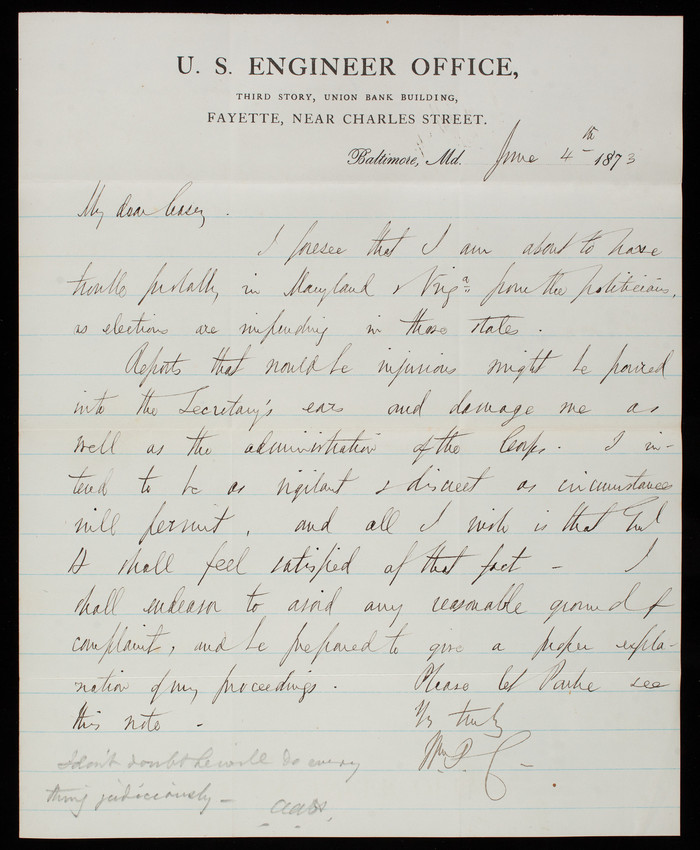 U. S. ENGINEER OFFICE,
THIRD STORY, UNION BANK BUILDING,
FAYETTE, NEAR CHARLES STREET.
Baltimore, Md. June 4th 1873
My dear Casey.
I foresee that I am about to have
trouble probably, in Maryland & Virga from the politicians,
as elections are impending in those states.
Reports that would be injurious might be poured
into the Secretary's ears and damage me as
well as the administration of the Corps. I in-
tend to be as vigilant & discreet as circumstances
will permit, and all I wish is that Genl
H shall feel satisfied of that fact - I
shall endeavor to avoid any reasonable ground of
complaint, and be prepared to give a proper expla-
nation of my proceedings. Please let Parke see
this note -
Yrs truly
Wm P. C.
I don't doubt he will do every
thing judiciously -
AAH